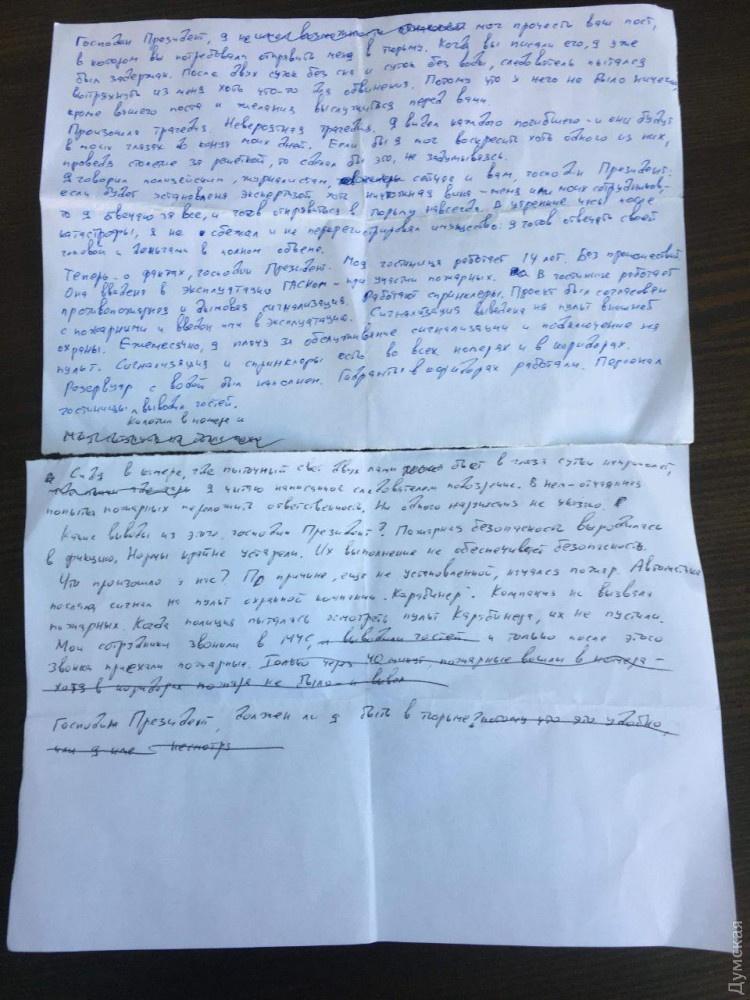 Господин Президент, я не имел возможности мог прочесть ваш пост,
в котором вы потребовали отправить меня в тюрьму. Когда вы писали его, я уже
был задержан. После двух суток без сна и суток без воды, следователь пытался
вытряхнуть из меня хоть что-то для обвинения. Потому что у него не было ничего,
кроме вашего поста и желания выслужиться перед вами.
Произошла трагедия. Невероятная трагедия. Я видел каждого погибшего - и они будут
в моих глазах до конца моих дней. Если бы я мог воскресить хоть одного из них,
проведя столетие за решеткой, то сделал бы это, не задумываясь.
Я говорил полицейским, журналистам, сейчас и вам, господин Президент:
если будет установлена экспертизой хоть ничтожная вина - меня или моих сотрудников-
то я отвечаю за все, и готов отправиться в тюрьму навсегда. В утренние часы после
катастрофы, я не сбежал и не перерегистрировал имущество. Я готов отвечать своей
головой и деньгами в полном объеме.
Теперь - о фактах, господин Президент. Моя гостиница работает 14 лет. Без происшествий.
Она введена в эксплуатацию ГАСКом - при участии пожарных. В гостинице работает
противопожарная и дымовая сигнализация. Работают спринклеры. Проект был согласован
с пожарными и введен ими в эксплуатацию. Сигнализация выведена на пульт внешней
охраны. Ежемесячно, я плачу за обслуживание сигнализации и подключение на
пульт. Сигнализация и спринклеры есть во всех номерах и в коридорах.
Резервуар с водой был наполнен. Гидранты в коридорах работали. Персонал
гостиницы выводил гостей.
Колотил в номера и
Сидя в камере, где пыточный свет двух ламп бьет в глаза сутки напролет,
я читаю написанное следователем подозрение. В нем - отчаянная
попытка пожарных переложить ответственность. Ни одного нарушения не указано.
Какие выводы из этого, господин Президент? Пожарная безопасность выродилась
в фикцию. Нормы крайне устарели. Их выполнение не обеспечивает безопасность.
Что произошло у нас? По причине, еще не установленной, начался пожар. Автоматика
послала сигнал на пульт охранной компании "Карабинер". Компания не вызвала
пожарных. Когда полиция пыталась осмотреть пульт Карабинера, их не пустили.
Мои сотрудники звонили в МЧС, и выводили гостей и только после этого
звонка приехали пожарные. Только через 40 минут, пожарные вошли в номера -
хотя в коридорах пожара не было - и вывел
Господин Президент, должен ли я быть в тюрьме? потому что это удобно,
или я не несмотря
Думская